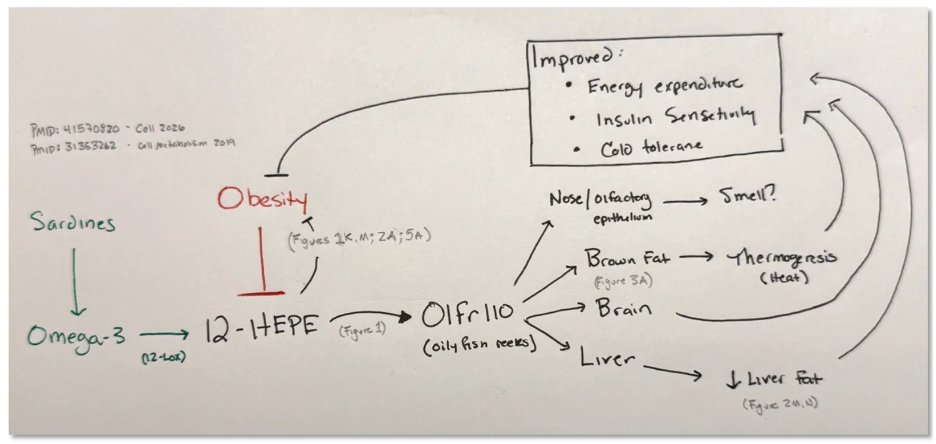 Improved:
• Energy expenditure
• Insulin Sensetivity
• Cold tolerane
PMID: 41570820 - Cell 2026
PMID: 31353262 - Cell Metabolism 2019
Obesity
Sardines
(Figures 1K,M; 2A; 5A)
Nose/olfactory
epithelium
Smell?
Brown Fat
(Figure 3A)
Thermogeresis
(Heat)
Omega-3
(12-LOX)
12-HEPE
(Figure 1)
Olfr110
(oily fish reeks)
Brain
Liver
↓ Liver Fat
(Figure 2M,N)